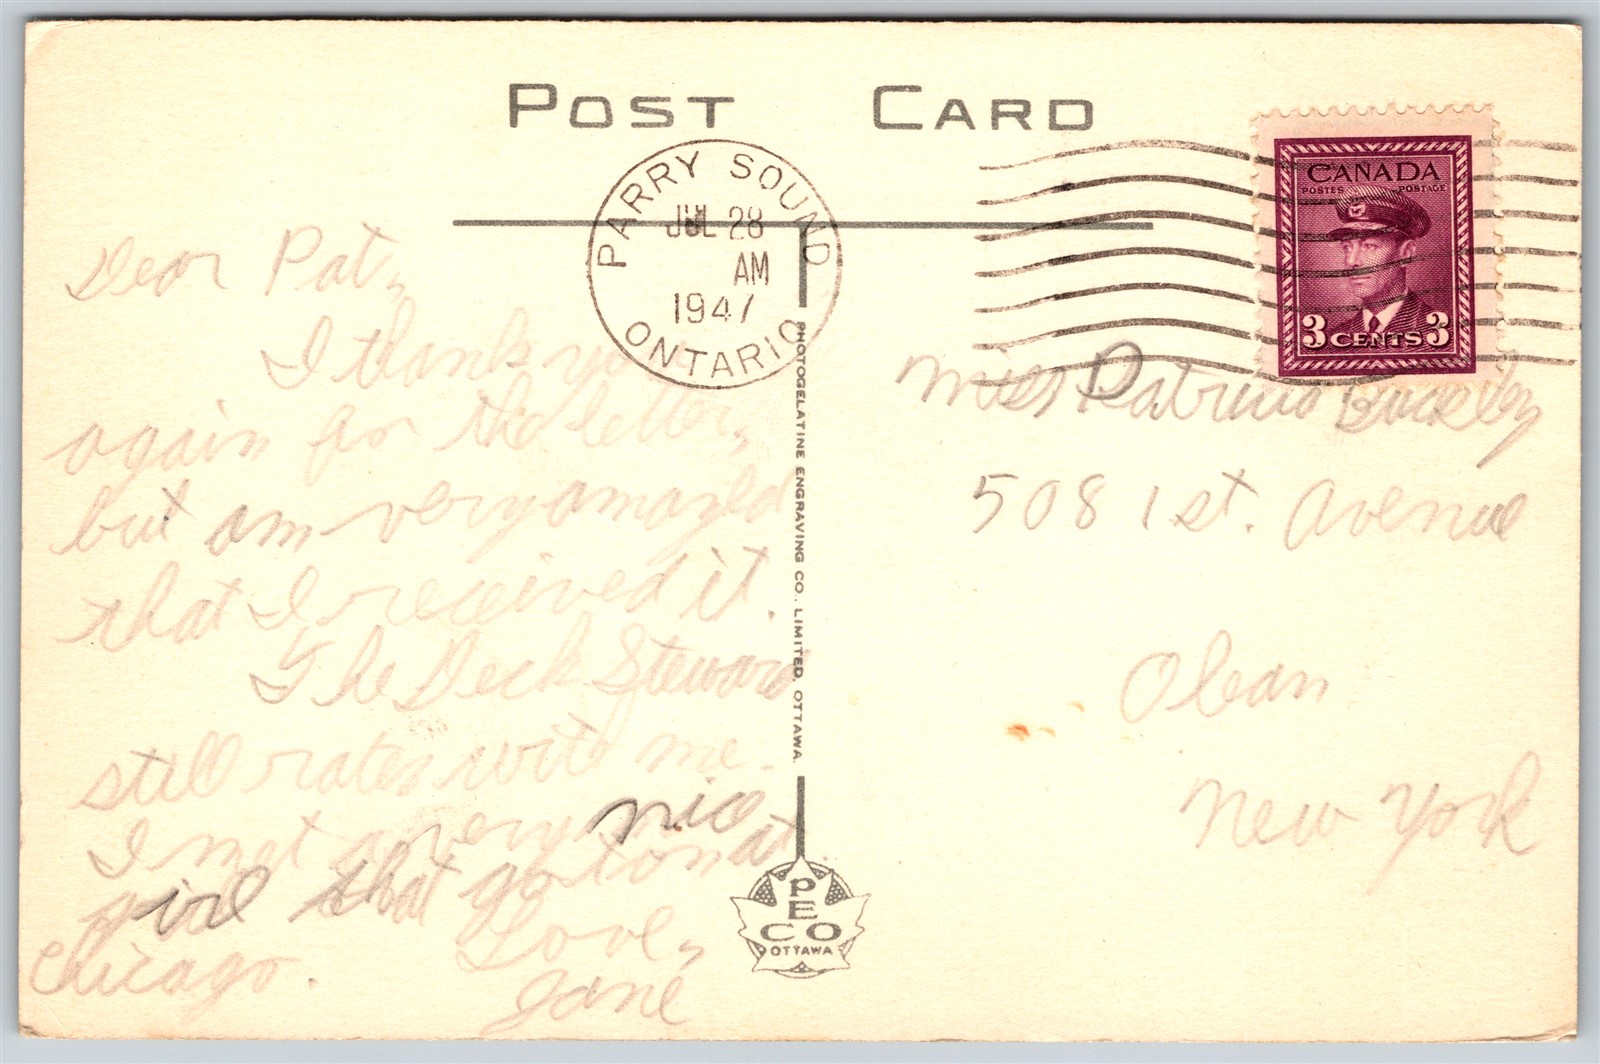 POST CARD
PARRY SOUND
JUL 28
AM
1947
ONTARIO
CANADA
POSTES POSTAGE
3 CENTS 3
Dear Pat,
I thank you
again for the letter,
but am very amazed
that I received it.
The Deck Steward
still rates with me.
I met a very nice
girl that go to at
Chicago.
Love,
Jane
PHOTOGELATINE ENGRAVING CO. LIMITED, OTTAWA.
PECO
OTTAWA
Miss Patricia Buckley
508 1st. Avenue
Olean
New York